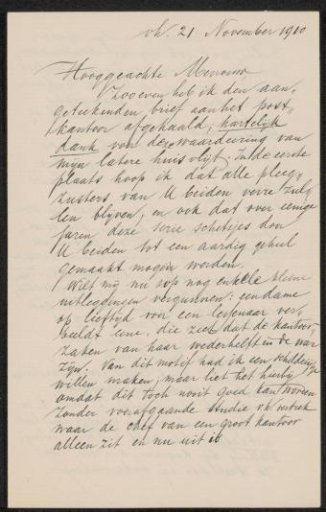 vh. 21 November 1910
Hooggeachte Mevrouw
Zooeven heb ik den aan-
geteekenden brief aan het post-
kantoor afgehaald; hartelijk
dank voor de waardeering van
mijn latere huisvlijt; in de eerste
plaats hoop ik dat alle pleeg-
zusters van U beiden verre zul-
len blijven, en ook dat over eenige
jaren deze serie schetsjes door
U beiden tot een aardig geheel
gemaakt mogen worden.
Wilt mij nu nog enkele kleine
uitleggingen vergunnen: een dame
op leeftijd voor een lessenaar ver-
beeldt eene, die ziet dat de kantoor-
zaken van haar wederhelft in de war
zijn. Van dit motief had ik een schilderijtje
willen maken, maar liet het hierbij
omdat dit toch nooit goed kan worden
zonder voorafgaande studie v/h vertrek
waar de chef van een groot kantoor
alleen zit en nu uit is